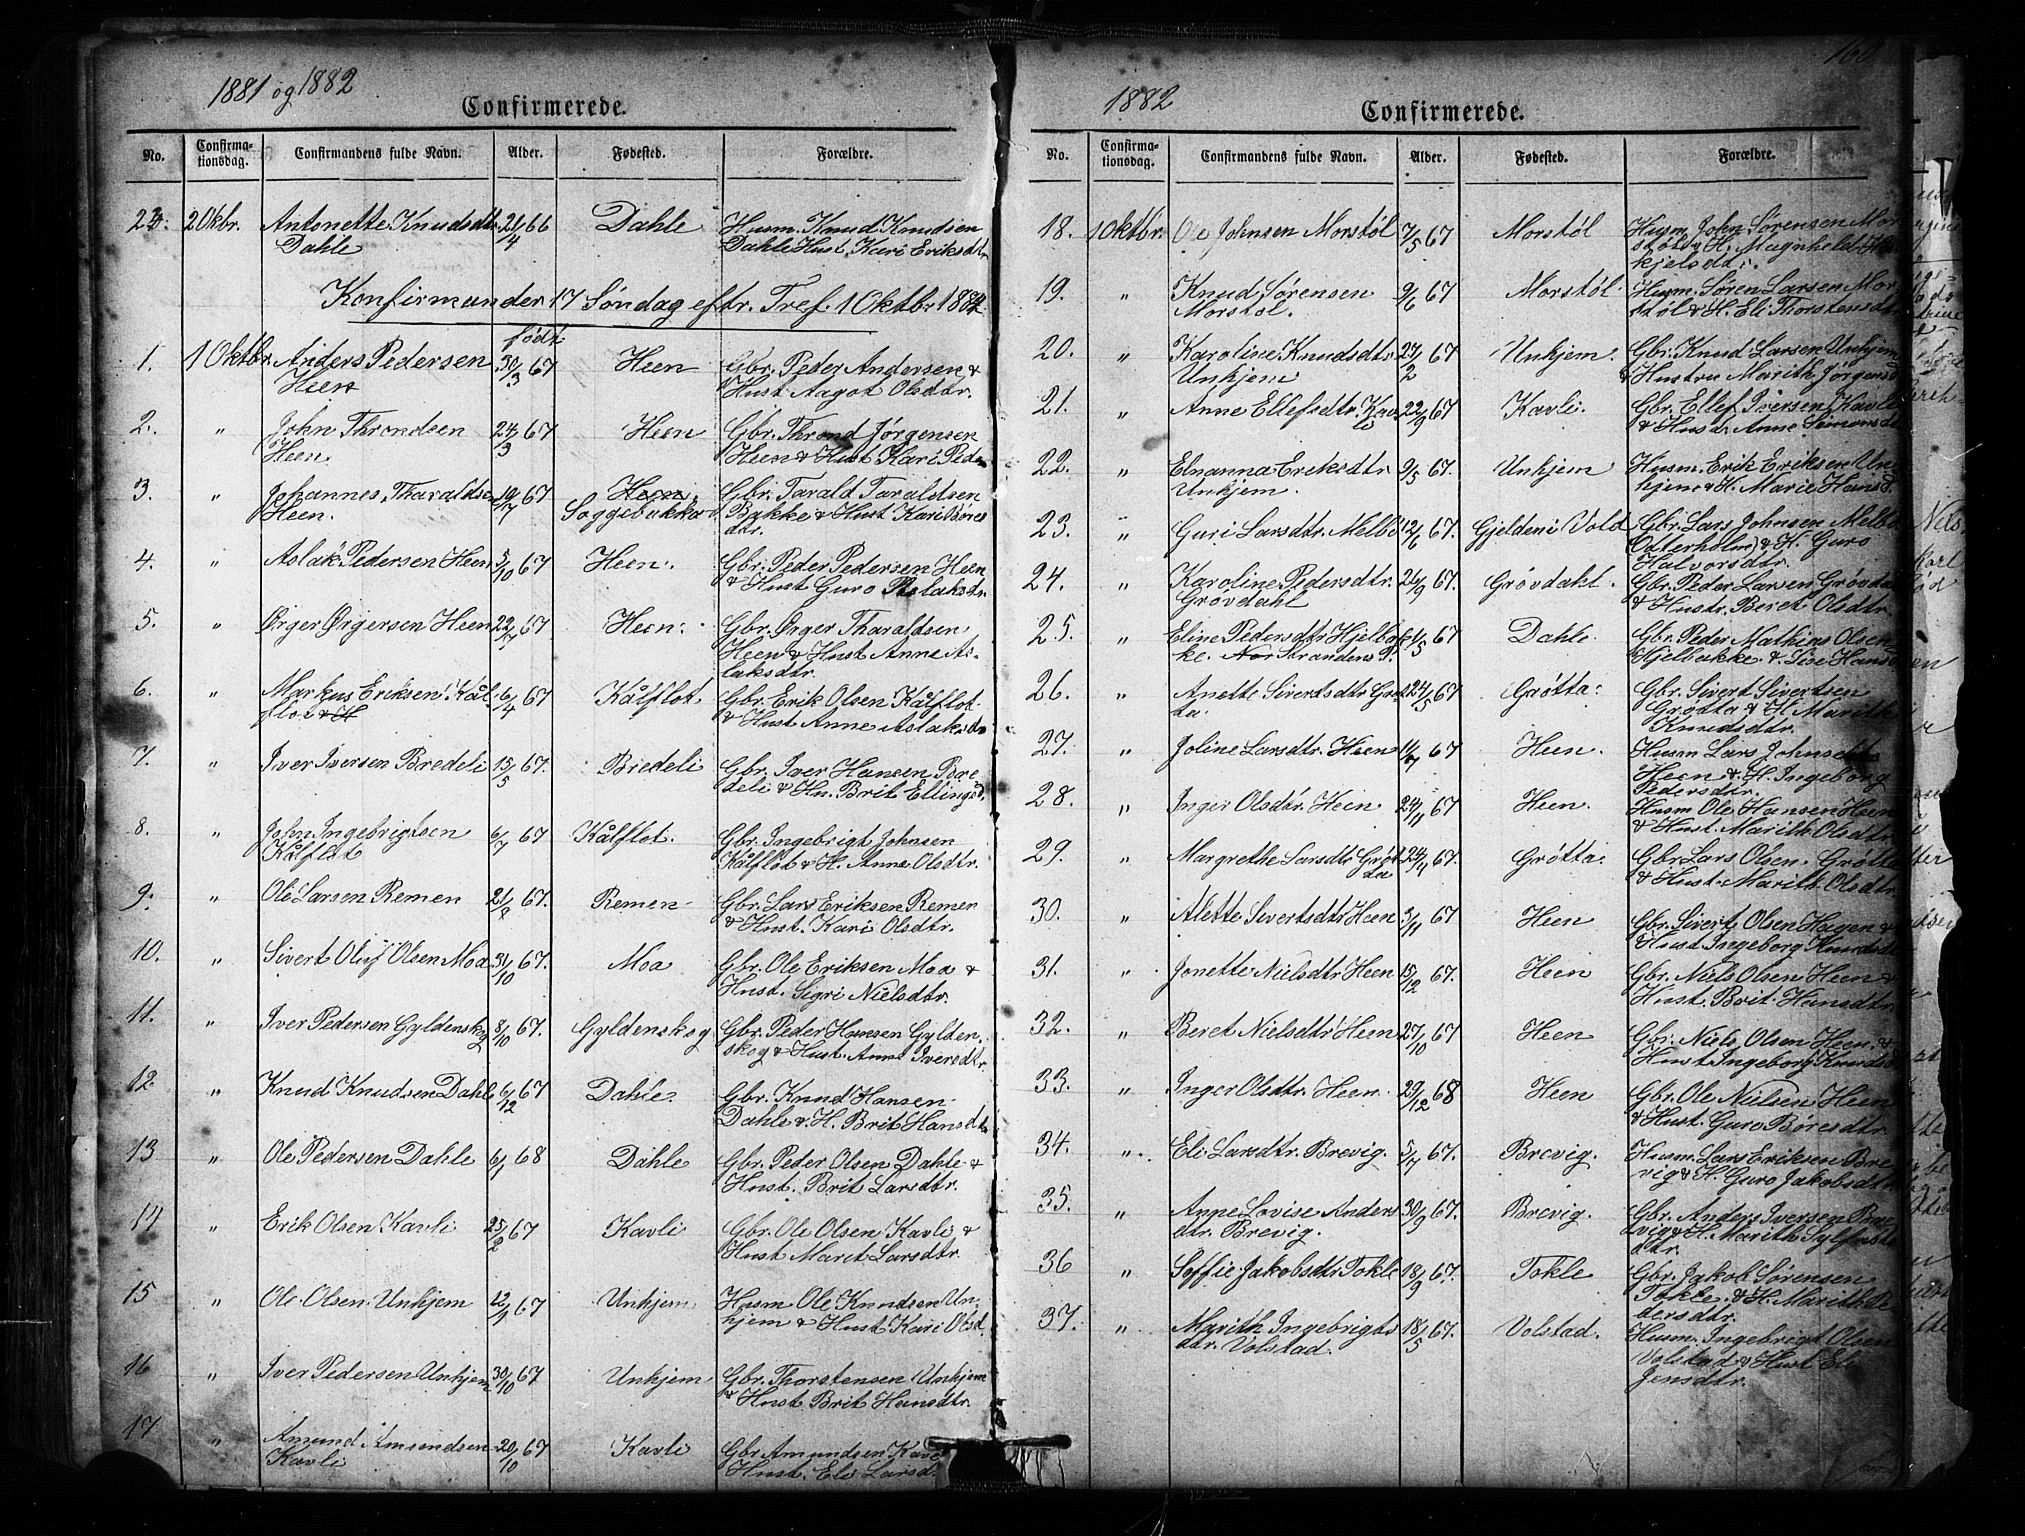 1881 og 1882
Confirmerede.
No. Confirma-tionsdag. Confirmandens fulde Navn. Alder. Fødested. Forældre.
23. 2 Oktbr. Antonette Knudsdtr. 21/4 66 Dahle Husm. Knud Knudsen
Dahle Dahle Hust. Kari Eriksdtr
Konfirmander 17 Søndag eftr. Tref. 1 Oktbr 1882
født
1. 1 Oktbr. Anders Pedersen 30/3 67 Heen Gbr. Peder Andersen &
Heen Hust Aagot Olsdtr.
2. " John Throndsen 24/3 67 Heen Gbr. Thrond Jørgensen
Heen. Heen & Hust Kari Peder
3. " Johannes Tharaldsen 19/7 67 Heen. Gbr. Tarald Taraldsen
Heen. Soggebakke Bakke & Hust Kari Børes
dtr.
4. " Aslak Pedersen Heen 5/10 67 Heen. Gbr. Peder Pedersen Heen
& Hust Guro Aslaksdtr.
5. " Ørger Ørgersen Heen 22/7 67 Heen. Gbr. Ørger Tharaldsen
Heen & Hust Anne As-
laksdtr.
6. " Markus Eriksen Kål- 6/4 67 Kålflot Gbr. Erik Olsen Kålflot
flot & H & Hust Anne Aslaksdtr
7. " Iver Iversen Bredeli 15/5 67. Bredeli Gbr. Iver Hansen Bre
deli & Hu. Brit Ellingsd.
8. " John Ingebrigtsen 6/7 67 Kålflot. Gbr. Ingebrigt Johnsen
Kålflot Kålflot & H. Anne Olsdtr.
9. " Ole Larsen Remen 21/8 67. Remen Gbr. Lars Eriksen Remen
& Hust. Kari Olsdtr.
10. " Sivert Oluf Olsen Moa 31/10 67. Moa Gbr. Ole Eriksen Moa &
Hust. Sigri Nielsdtr.
11. " Iver Pedersen Gyldenskog 8/10 67. Gyldenskog Gbr. Peder Hansen Gylden,
skog & Hust. Anne Iversdtr
12 " Knud Knudsen Dahle 6/12 67 Dahle. Gbr. Knud Hansen
Dahle & H. Brit Hansdtr
13 " Ole Pedersen Dahle 6/1 68 Dahle Gbr. Peder Olsen Dahle &
Hust. Brit Larsdtr.
14 " Erik Olsen Kavli 25/2 67 Kavli Gbr. Ole Olsen Kavli &
Hust Maret Larsdtr.
15 " Ole Olsen Unhjem 12/1 67 Unhjem Husm Ole Knudsen Un,
hjem & Hust Kari Olsd.
16 " Iver Pedersen Unhjem 30/10 67 Unhjem Gbr. Thorstensen Unhjem
& Hust Brit Hansdtr.
17 " Amund Amundsen 20/10 67 Kavli Gbr Amundsen Kavli
Kavli Hust. Eli Larsd.
160
1882
Confirmerede.
No. Confirma-tionsdag. Confirmandens fulde Navn. Alder. Fødested. Forældre.
18. 1 Oktbr. Ole Johnsen Morstøl 7/5 67 Morstøl Husm John Sørensen Mor
støl & H. Magnhild
kjelsdtr.
19. " Knud Sørensen 9/6 67 Morstøl Husm. Søren Larsen Mor
Morstøl. støl & H. Eli Thorstensdtr
20. " Karoline Knudsdtr 27/2 67 Unhjem. Gbr. Knud Larsen Unhjem
Unhjem & Hustru Marith Jørgensd
21. " Anne Ellefsdtr. Kavli 22/9 67 Kavli. Gbr. Ellef Iversen Kavle
& Hustr Anne Simonsd
22. " Elnanna Eriksdtr 9/5 67. Unhjem Husm. Erik Eriksen Un
Unhjem. hjem & H. Marie Hansd.
23. " Guri Larsdtr. Melbø 12/6 67. Gjelden i Vold Gbr. Lars Johnsen Melbø
Odterholm & H. Guro
Halvorsdtr.
24. " Karoline Pedersdtr. 26/9 67. Grøvdahl. Gbr. Peder Larsen Grøvda
Grøvdahl & Hustr. Beret Olsdtr.
25. " Eline Pedersdtr Hjelbak 21/5 67 Dahle Gbr. Peder Mathias Olsen
ke. Nor Strandens P. Hjelbakke. & Lise Hans
26. " Anette Sivertsdtr Grøt 24/5 67 Grøtta. Gbr. Sivert Sivertsen
ta. Grøtta & H. Marith
Knudsdtr.
27. " Joline Larsdtr. Heen 14/7 67 Heen. Husm Lars Johnsen
Heen & H. Ingeborg
Pedersdtr.
28. " Inger Olsdtr. Heen. 24/11 67 Heen. Husm Ole Hansen Heen
& Hust. Marith Olsdtr
29. " Margrethe Larsdtr Grøtta 24/4 67. Grøtta. Gbr Lars Olsen Grøtta
& Hust. Marith Olsdtr.
30. " Alette Sivertsdtr Heen 3/11 67 Heen Gbr. Sivert Olsen Hagen &
Hust Ingeborg Knudsdtr
31. " Jonette Nielsdtr Heen 15/12 67. Heen Gbr. Niels Olsen Heen &
Hust Brit Hansdtr.
32. " Beret Nielsdtr Heen 27/10 67 Heen Gbr. Niels Olsen Heen &
Hust Ingeborg Knudsd
33. " Inger Olsdtr. Heen. 29/12 68 Heen Gbr. Ole Nielsen Heen
& Hust. Guro Børesdtr.
34. " Eli Larsdtr. Brevig. 5/7 67. Brevig. Husm. Lars Eriksen Bre
vig & H. Guro Jakobsdtr
35. " Anne Lovise Anders 30/9 67. Brevig. Gbr. Anders Iversen Bre
dtr. Brevig. vig & H. Marith Sylfests
dtr.
36 " Soffie Jakobsdtr Tokle 18/9 67. Tokle Gbr. Jakob Sørensen
Tokle. & H. Marith Pe
dersdtr.
37. " Marith Ingebrigts 18/5 67. Volstad. Husm. Ingebrigt Olsen
dtr. Volstad. Volstad & Hust Eli
Jensdtr.